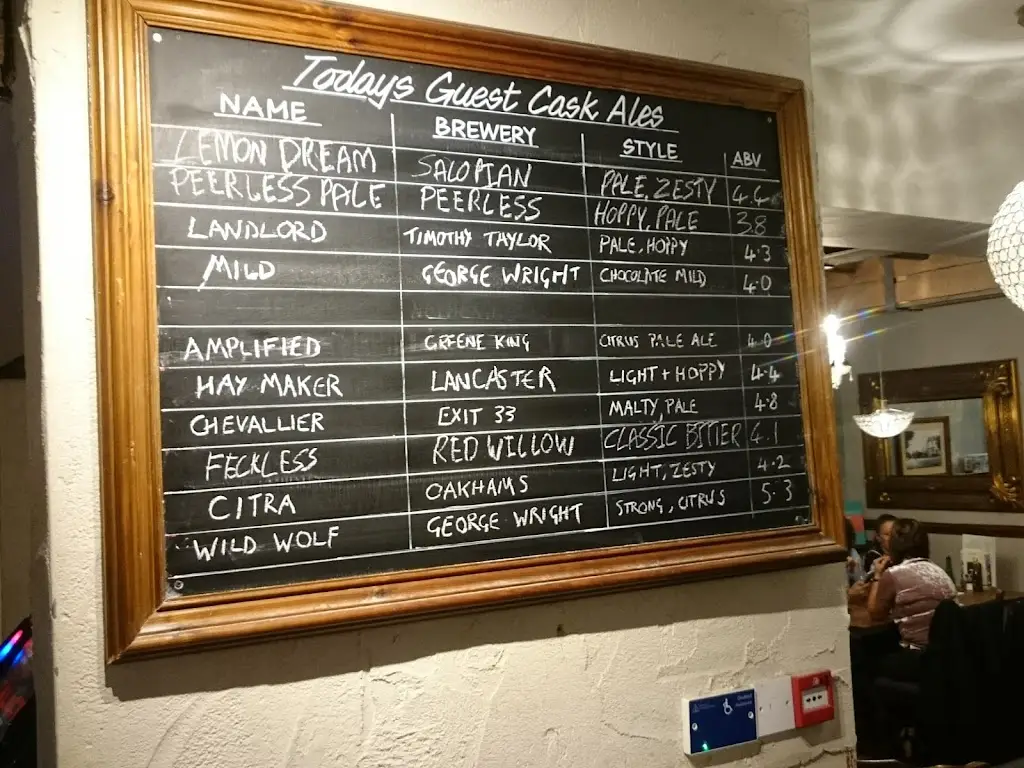 Todays Guest Cask Ales
NAME BREWERY STYLE ABV
LEMON DREAM SALOPIAN PALE, ZESTY
PEERLESS PALE PEERLESS HOPPY, PALE 3.8
LANDLORD TIMOTHY TAYLOR PALE, HOPPY 4.3
MILD GEORGE WRIGHT CHOCOLATE MILD 4.0
AMPLIFIED GREENE KING CITRUS PALE ALE 4.0
HAY MAKER LANCASTER LIGHT + HOPPY 4.4
CHEVALLIER EXIT 33 MALTY, PALE 4.8
FECKLESS RED WILLOW CLASSIC BITTER 4.1
CITRA OAKHAMS LIGHT, ZESTY 4.2
WILD WOLF GEORGE WRIGHT STRONG, CITRUS 5.3